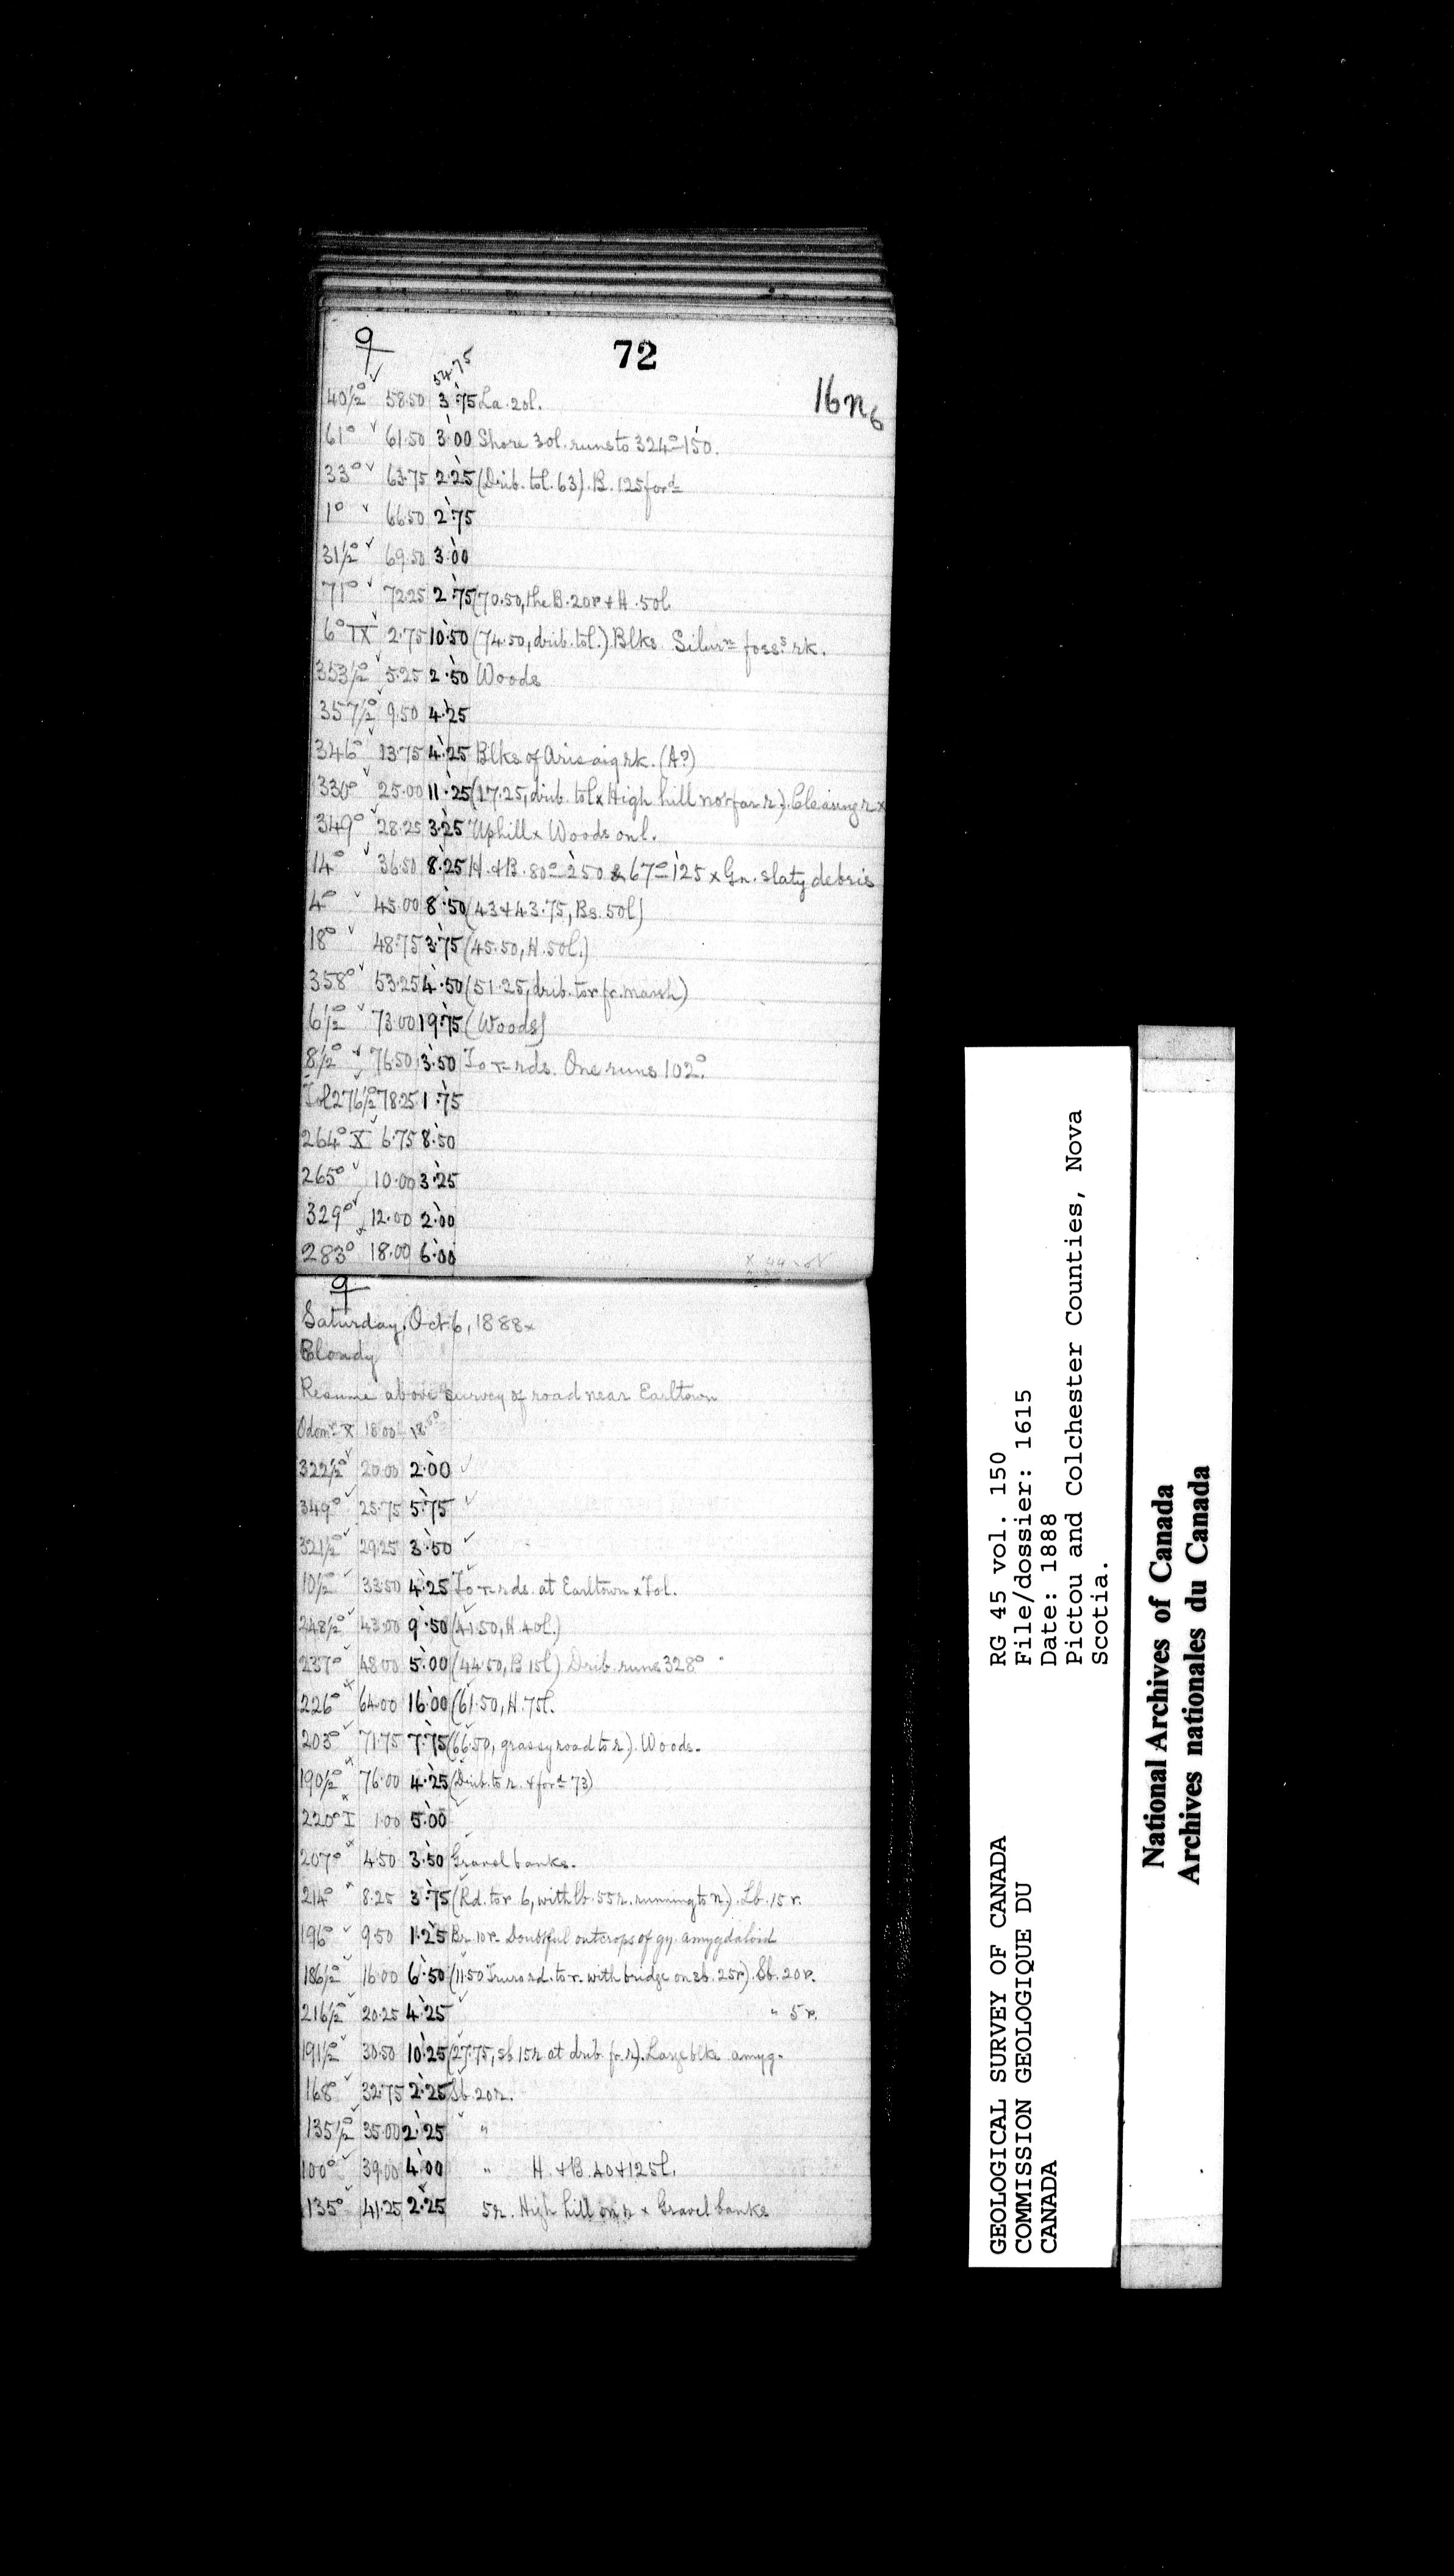 9
72
54.75
16n6
40½° 58.50 3.75 La. 20l.
61° 61.50 3.00 Shore 30l. runs to 324° 150.
33° 63.75 2.25 (Drib. to l. 63). B. 125 for^d
1° 66.50 2.75
31½° 69.50 3.00
71° 72.25 2.75 (70.50, the B. 20r + H. 50l
6° IX 2.75 10.50 (74.50, drib. to l.) Blks. Silur^n foss^s rk.
353½° 5.25 2.50 Woods
357½° 9.50 4.25
346° 13.75 4.25 Blks of Arisaig rk. (A?)
330° 25.00 11.25 (17.25, drib. to l x High hill not far r.). Clearing r x
349° 28.25 3.25 Uphill x Woods on l.
14° 36.50 8.25 H. + B. 80° 250 & 67° 125 x Gn. slaty debris
4° 45.00 8.50 (43 + 43.75, Bs. 50l)
18° 48.75 3.75 (45.50, H. 50l.)
358° 53.25 4.50 (51.25, drib. to r fr. marsh)
6½° 73.00 19.75 (Woods)
8½° 76.50 3.50 To rds. One runs 102°.
To l 276½° 78.25 1.75
264° X 6.75 8.50
265° 10.00 3.25
329° 12.00 2.00
283° 18.00 6.00
9
Saturday, Oct 6, 1888 x
Cloudy
Resume above survey of road near Earltown
Odom^r X 18.00 18.00
322½° 20.00 2.00
349° 25.75 5.75
321½° 29.25 3.50
10½° 33.50 4.25 To rds. at Earltown x To l.
248½° 43.00 9.50 (41.50, H. 40l.)
237° 48.00 5.00 (44.50, B 15l) Drib. runs 328°
226° 64.00 16.00 (61.50, H. 75l.
203° 71.75 7.75 (66.50, grassy road to r.). Woods.
190½° 76.00 4.25 (Drib. to r. + for^d 73)
220° I 1.00 5.00
207° 4.50 3.50 Gravel banks.
214° 8.25 3.75 (Rd. to r. 6, with lb. 55r. running to r.). Lb. 15 r.
196° 9.50 1.25 Br. 10r. Doubtful outcrops of gy. amygdaloid
186½° 16.00 6.50 (11.50 Truro rd. to r. with bridge on sb. 25r). Sb. 20r.
216½° 20.25 4.25 " 5 r.
191½° 30.50 10.25 (27.75, sb 15r at drib. fr. r). Large blks amyg.
168° 32.75 2.25 Sb 20r.
135½° 35.00 2.25 "
100° 39.00 4.00 " H. + B. 40 + 125l.
135° 41.25 2.25 5r. High hill on r x Gravel banks
RG 45 vol. 150
File/dossier: 1615
Date: 1888
Pictou and Colchester Counties, Nova
Scotia.
GEOLOGICAL SURVEY OF CANADA
COMMISSION GEOLOGIQUE DU
CANADA
National Archives of Canada
Archives nationales du Canada